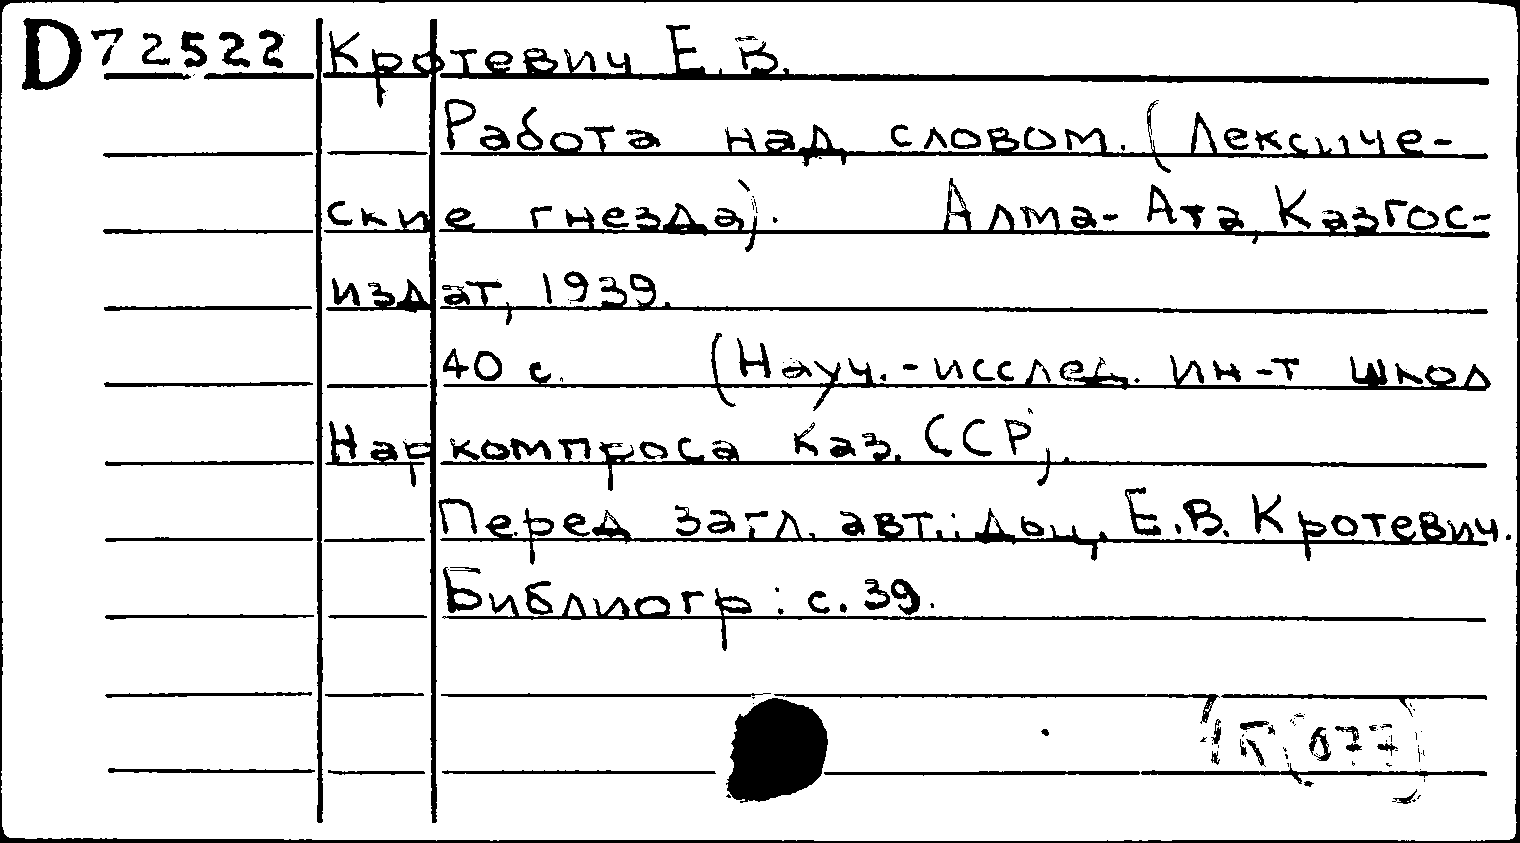 D72522 Кротевич Е.В.
Работа над словом. (Лексиче-
ские гнезда). Алма-Ата, Казгос-
издат, 1939.
40 с. (Науч.-исслед. ин-т школ
Наркомпроса Каз. ССР).
Перед загл. авт.: доц. Е.В. Кротевич.
Библиогр: с. 39.
(077)